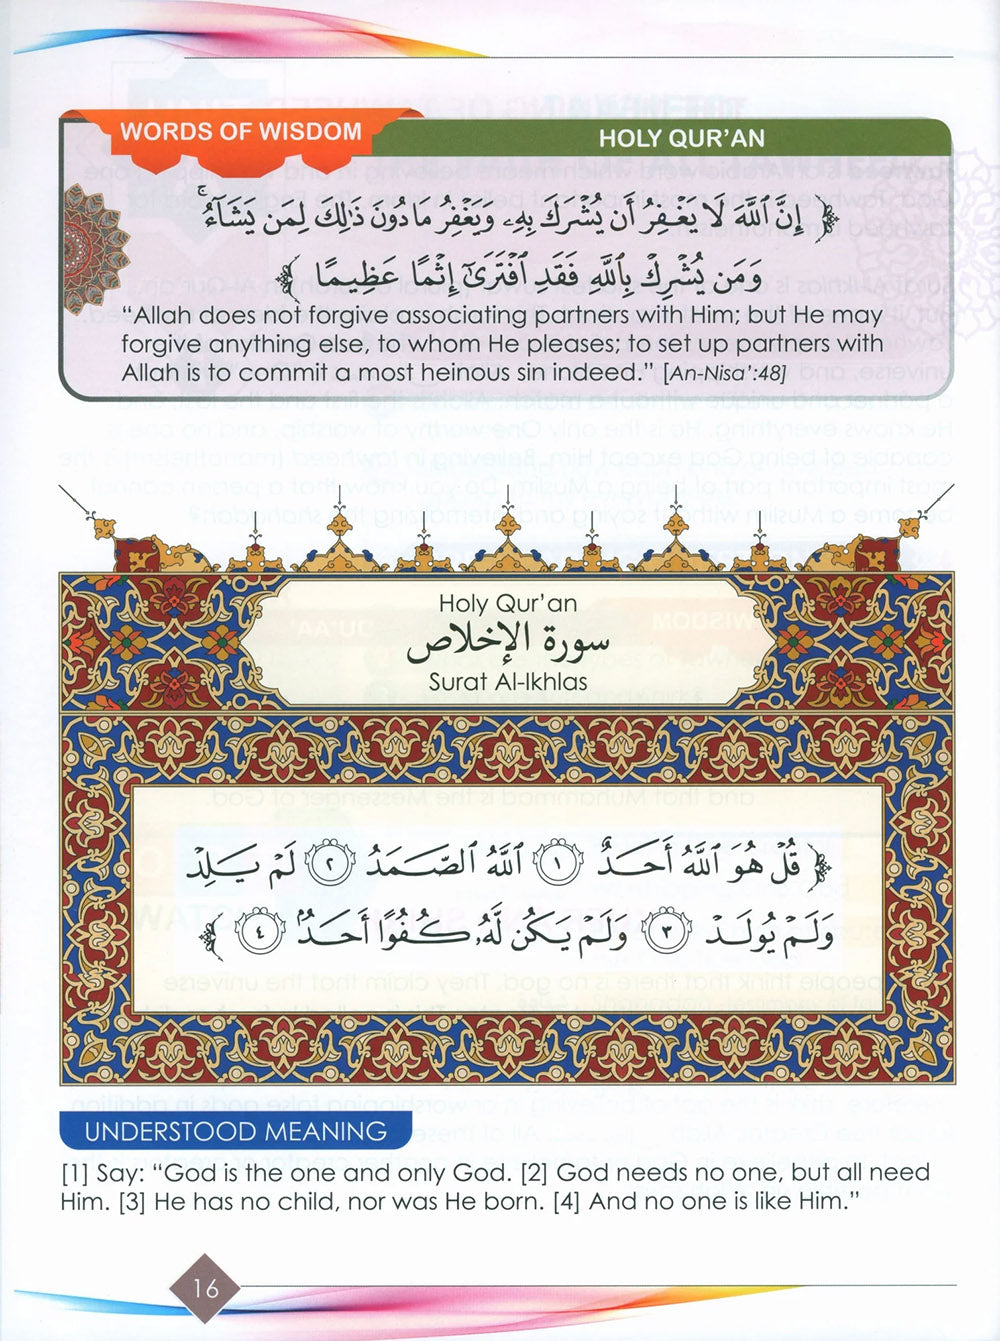 WORDS OF WISDOM
HOLY QUR'AN
﴿ إِنَّ ٱللَّهَ لَا يَغْفِرُ أَن يُشْرَكَ بِهِۦ وَيَغْفِرُ مَا دُونَ ذَٰلِكَ لِمَن يَشَآءُ ۚ
وَمَن يُشْرِكْ بِٱللَّهِ فَقَدِ ٱفْتَرَىٰٓ إِثْمًا عَظِيمًا ﴾
“Allah does not forgive associating partners with Him; but He may
forgive anything else, to whom He pleases; to set up partners with
Allah is to commit a most heinous sin indeed.” [An-Nisa’:48]
Holy Qur’an
سورة الإخلاص
Surat Al-Ikhlas
﴿ قُلْ هُوَ ٱللَّهُ أَحَدٌ ١ ٱللَّهُ ٱلصَّمَدُ ٢ لَمْ يَلِدْ
وَلَمْ يُولَدْ ٣ وَلَمْ يَكُن لَّهُۥ كُفُوًا أَحَدٌۢ ٤ ﴾
UNDERSTOOD MEANING
[1] Say: “God is the one and only God. [2] God needs no one, but all need
Him. [3] He has no child, nor was He born. [4] And no one is like Him.”
16